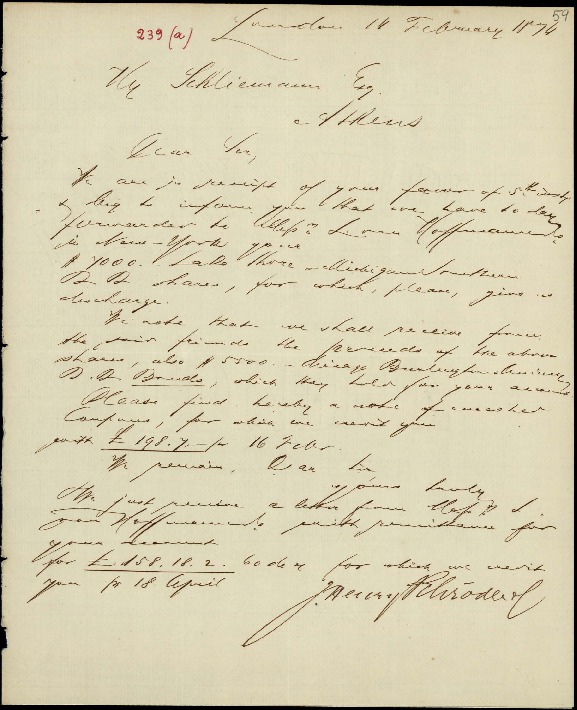 59
239 (a)
London 14 February 1874
Hy Schliemann Esq.
Athens
Dear Sir,
We are in receipt of your favor of 5th inst
& beg to inform you that we have to day
forwarded to Messrs Hoffmann
in New-York your
$ 7000. Lake Shore & Michigan Southern
R. R. shares, for which, please, give us
discharge.
We note that we shall receive from
the said friends the proceeds of the above
shares, also $ 5500. Chicago Burlington
R. R. Bonds, which they hold for your account
Please find hereby a note of
Coupons, for which we credit you
with £ 198.7. pr 16 Febr.
We remain, Dear Sir
Yours truly
We just receive a letter from Messrs
Hoffmann with remittance for
your account
for £ 158.18.2. 60 d/s for which we credit
you pr 18 April
J. Henry Schröder